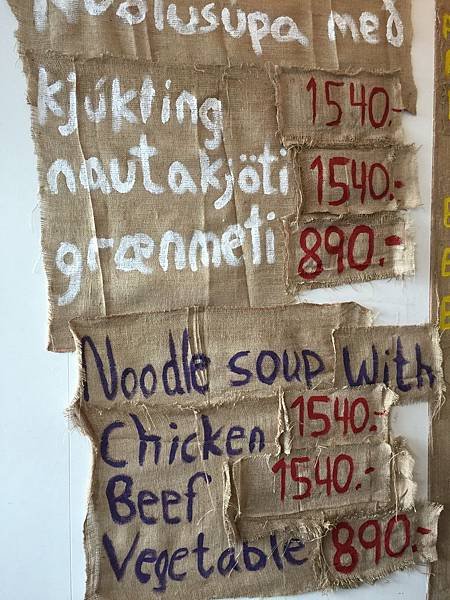 Núðlusúpa með
kjúkling 1540.-
nautakjöti 1540.-
grænmeti 890.-
Noodle soup with
Chicken 1540.-
Beef 1540.-
Vegetable 890.-